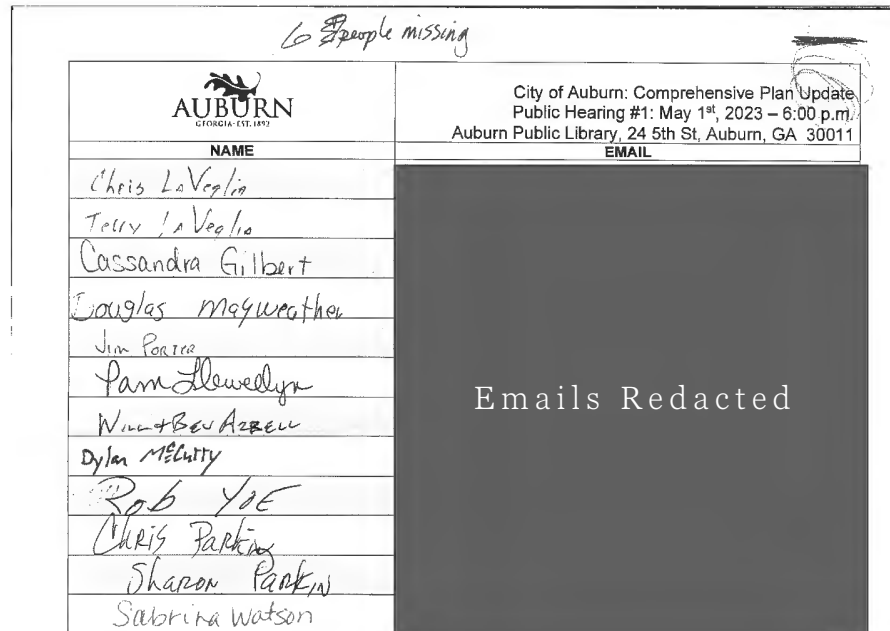 6 people missing
AUBURN
GEORGIA·EST. 1892
City of Auburn: Comprehensive Plan Update
Public Hearing #1: May 1st, 2023 – 6:00 p.m.
Auburn Public Library, 24 5th St, Auburn, GA 30011
NAME
EMAIL
Chris LaVeglia
Terry LaVeglia
Cassandra Gilbert
Douglas Mayweather
Jim Porter
Pam Llewellyn
Will + Bev Azbell
Dylan McCurry
Rob Yoe
Chris Parkin
Sharon Parkin
Sabrina Watson
Emails Redacted